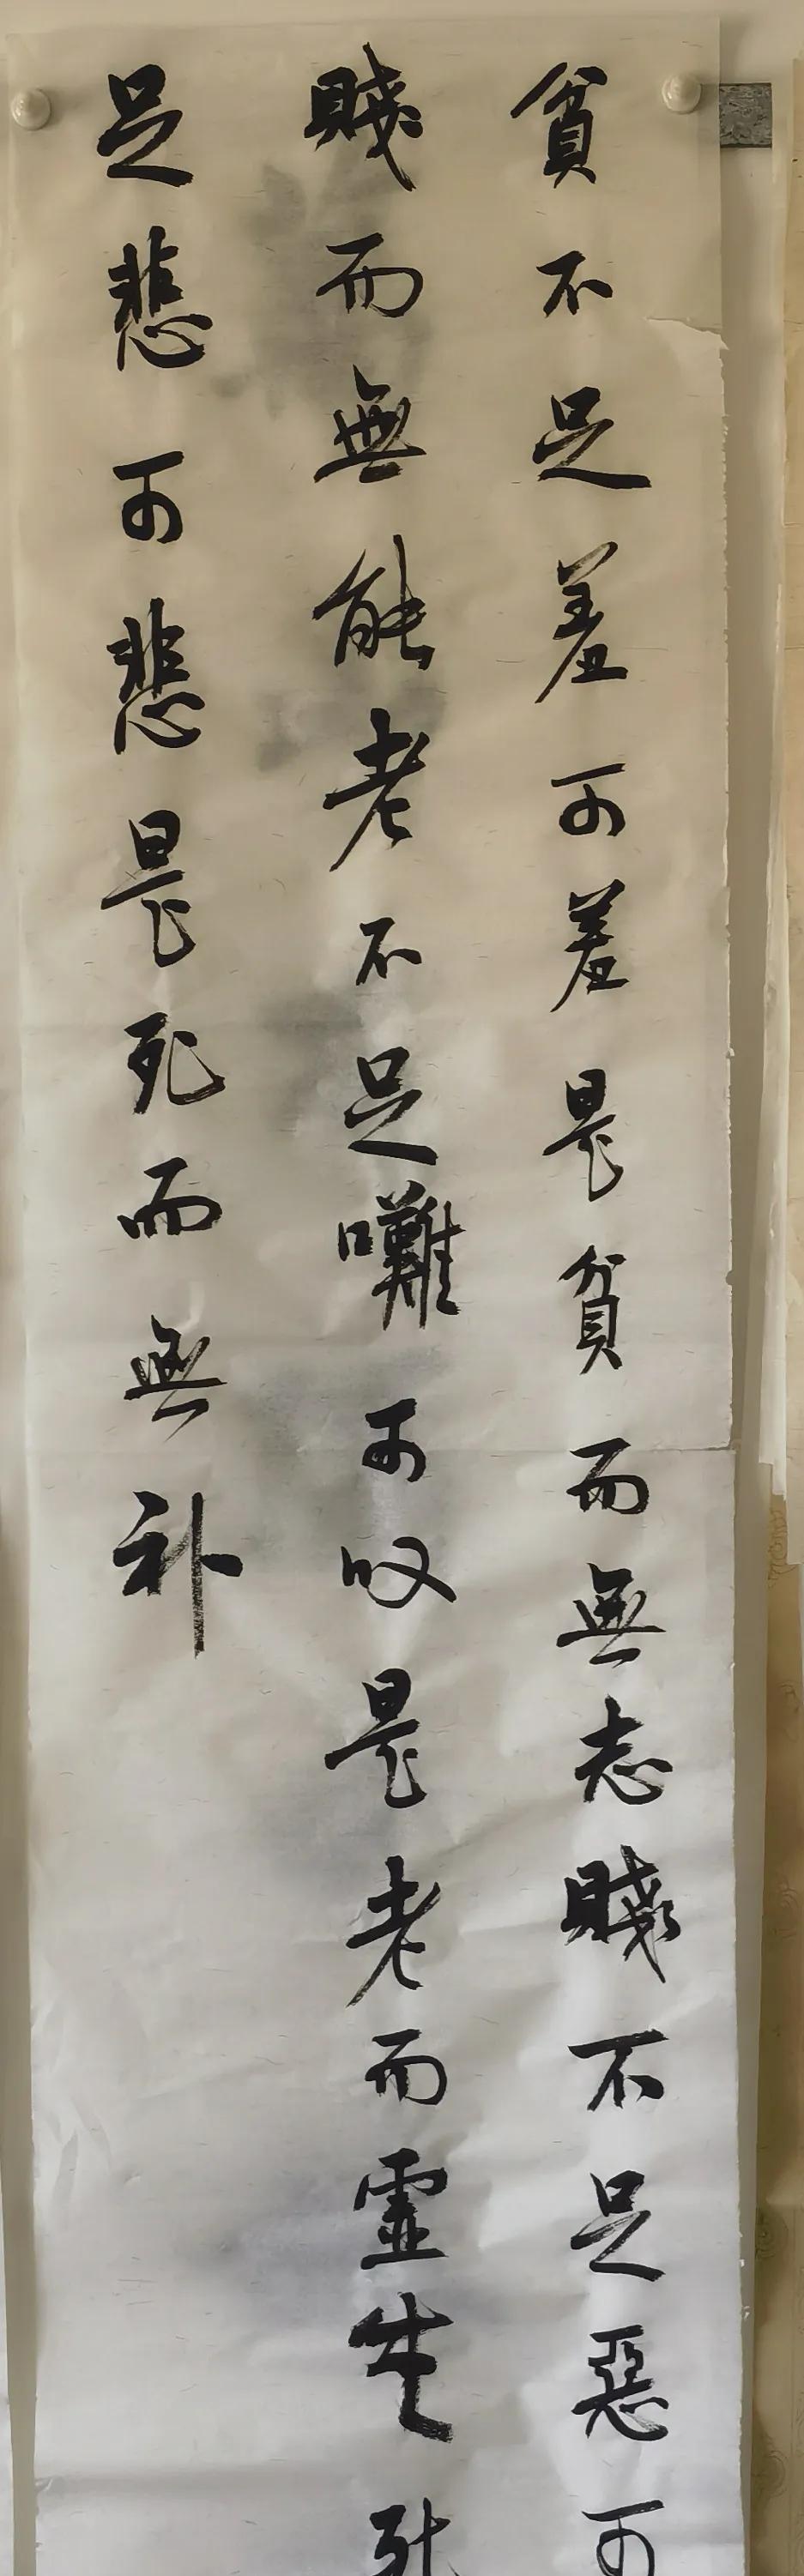 貧不足羞可羞是貧而無志賤不足惡可
賤而無能老不足嘆可叹是老而虛生死
足悲可悲是死而無补